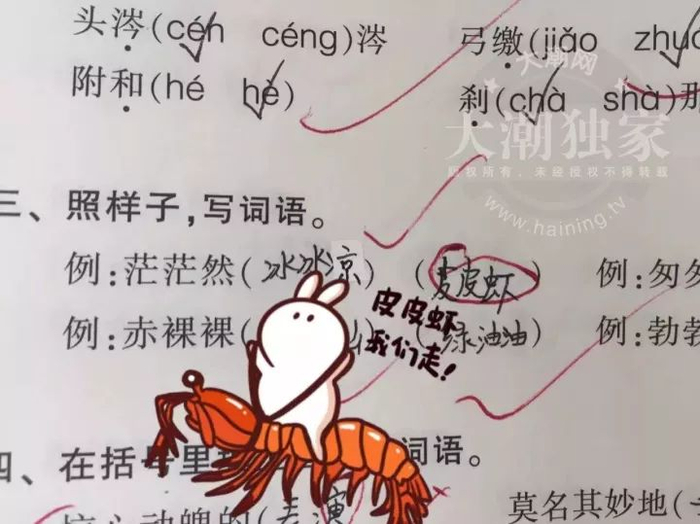 头涔(cén céng)涔 弓缴(jiǎo zhuó
附和(hé hè) 刹(chà shà)那
大潮网
大潮独家
版权所有，未经授权不得转载
www.haining.tv
三、照样子,写词语。
例:茫茫然(冰冰凉) (皮皮虾) 例:匆匆
例:赤裸裸( ) (绿油油) 例:勃勃
皮皮虾
我们走!
四、在括号里 词语。
惊心动魄的(表演 莫名其妙地(